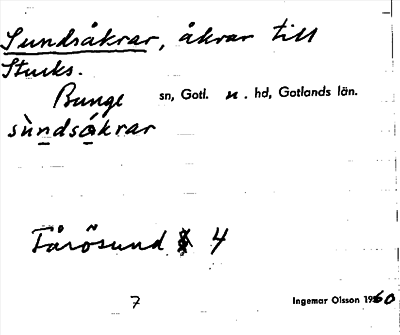 Sundsåkrar, åkrar till
Stucks.
Bunge sn, Gotl. n. hd, Gotlands län.
sùndsákrar
Fårösund 4
7
Ingemar Olsson 1960